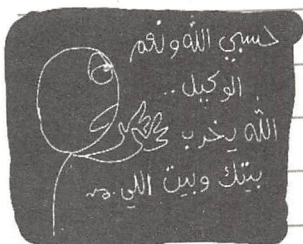 حسبي الله ونعم
الوكيل ..
الله يخرب
بيتك وبيت اللي